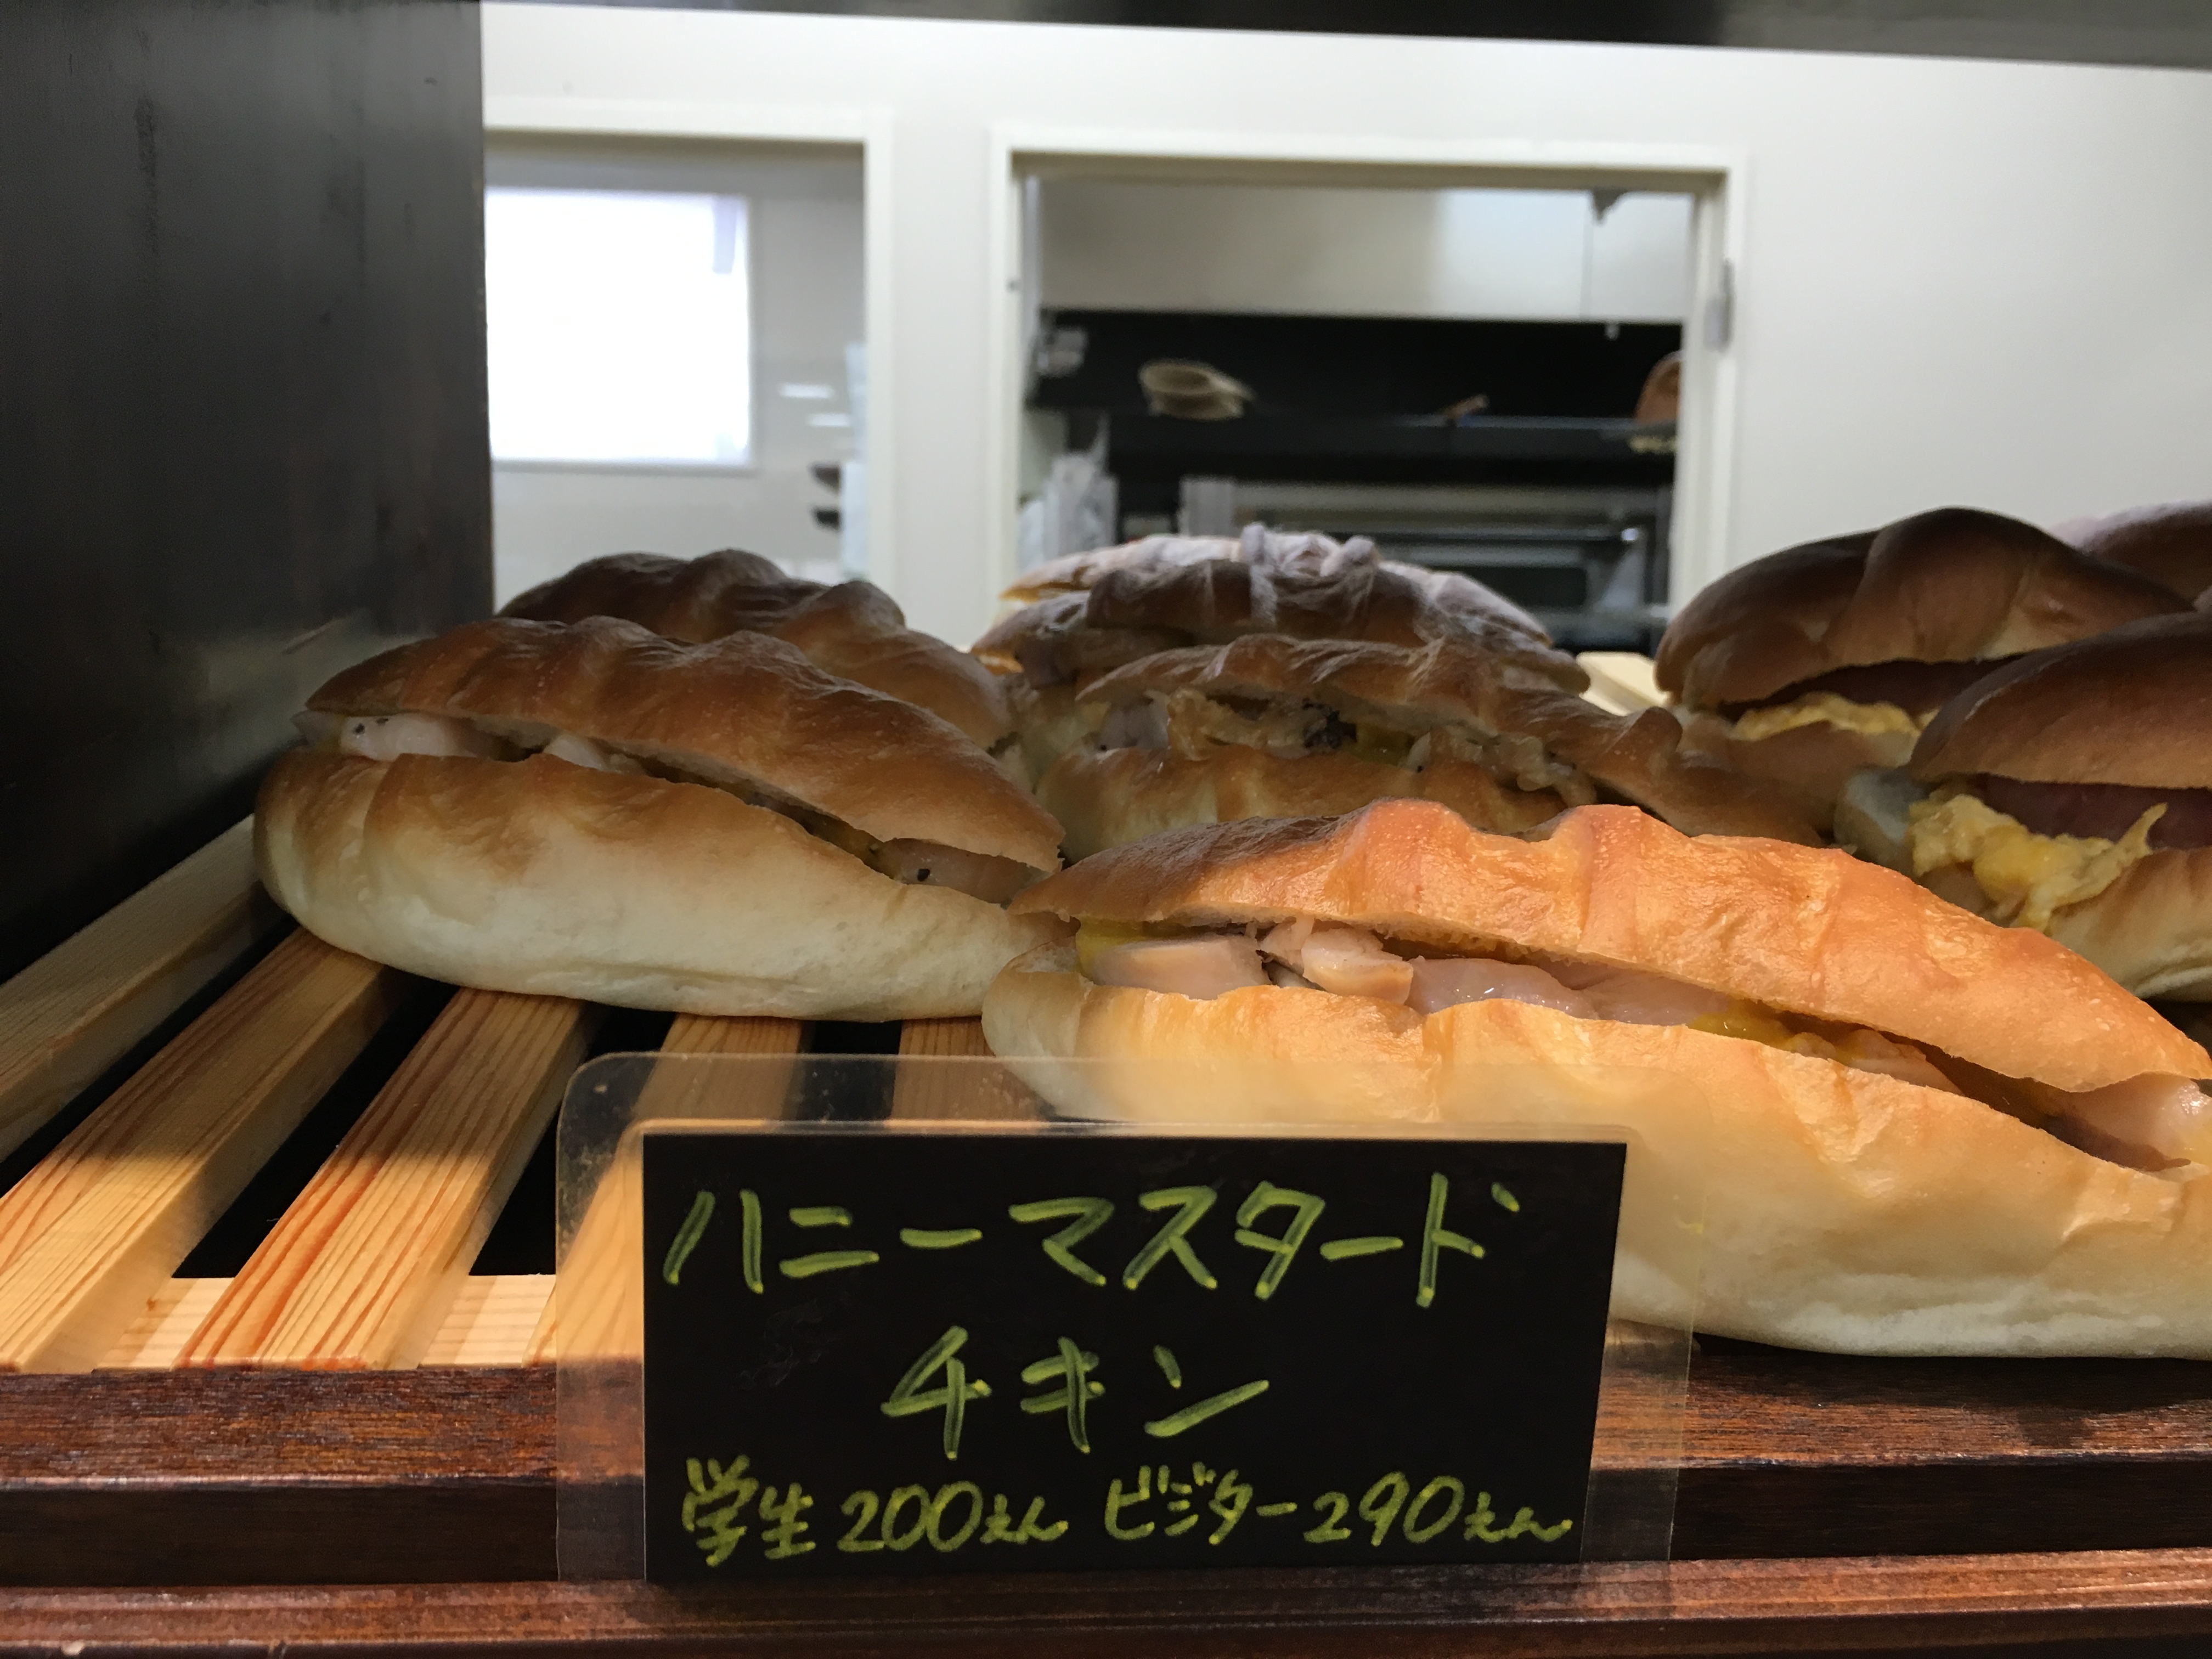 ハニーマスタード
チキン
学生200えん ビジター290えん